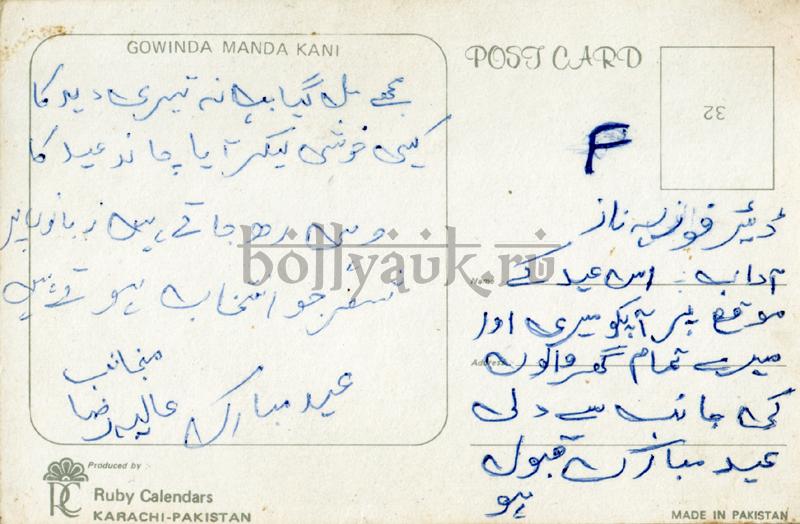 GOWINDA MANDAKANI
مجھے مل گیا بہانہ تیری دید کا
کیسی خوشی لیکر آیا چاند عید کا
وہی رہ جاتے ہیں زبانوں پر
شعر جو انتخاب ہوتے ہیں
منجانب
عید مبارک عالیہ رضا
Produced by
RC
Ruby Calendars
KARACHI-PAKISTAN
POST CARD
32
F
ڈیئر فوزیہ ناز
Name
آداب۔ اس عید کے
موقع پر آپکو میری اور
Address
میرے تمام گھر والوں
کی جانب سے دلی
عید مبارک قبول
ہو
MADE IN PAKISTAN
bollyauk.ru